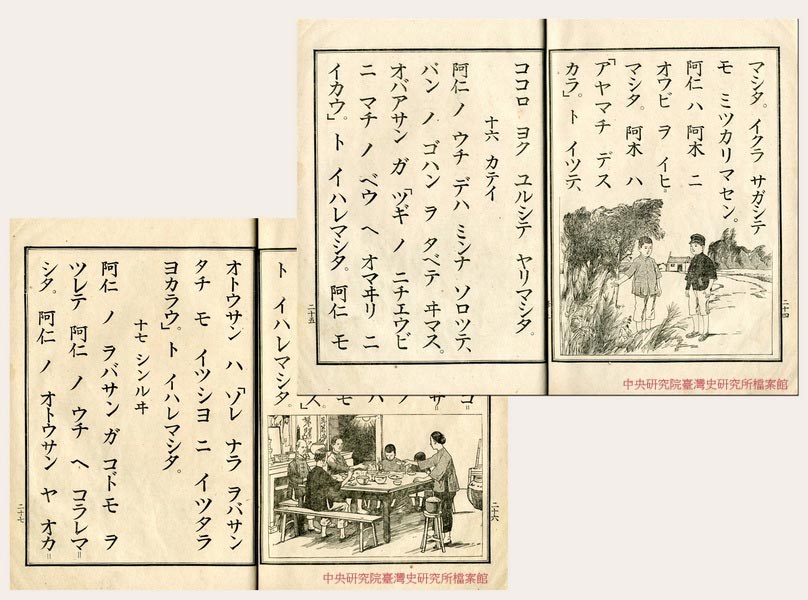 マシタ。イクラ サガシテ
モ ミツカリマセン。
阿仁 ハ 阿木 ニ
オワビ ヲ イヒ
マシタ。阿木 ハ
「アヤマチ デス
カラ」。ト イツテ、
二十四
ココロ ヨク ユルシテ ヤリマシタ。
十六 カテイ
阿仁 ノ ウチ デハ ミンナ ソロツテ、
バン ノ ゴハン ヲ タベテ ヰマス。
オバアサン ガ「ツギ ノ ニチエウビ
ニ マチ ノ ベウ ヘ オマヰリ ニ
イカウ。」ト イハレマシタ。阿仁 モ
二十五
中央研究院臺灣史研究所檔案館
モ
ス。」
ト イハレマシタ。
二十六
オトウサン ハ、「ソレ ナラ ヲバサン
タチ モ イツシヨ ニ イツタラ
ヨカラウ。」ト イハレマシタ。
十七 シンルヰ
阿仁 ノ ヲバサン ガ コドモ ヲ
ツレテ 阿仁 ノ ウチ ヘ コラレマ=
シタ。阿仁 ノ オトウサン ヤ オカ=
二十七
中央研究院臺灣史研究所檔案館